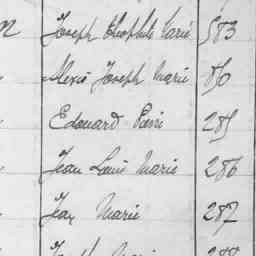 Joseph Théophile Marie 583
Alexis Joseph Marie 80
Edouard Pierre 285
Jean Louis Marie 286
Jean Marie 287
Joseph Marie 288